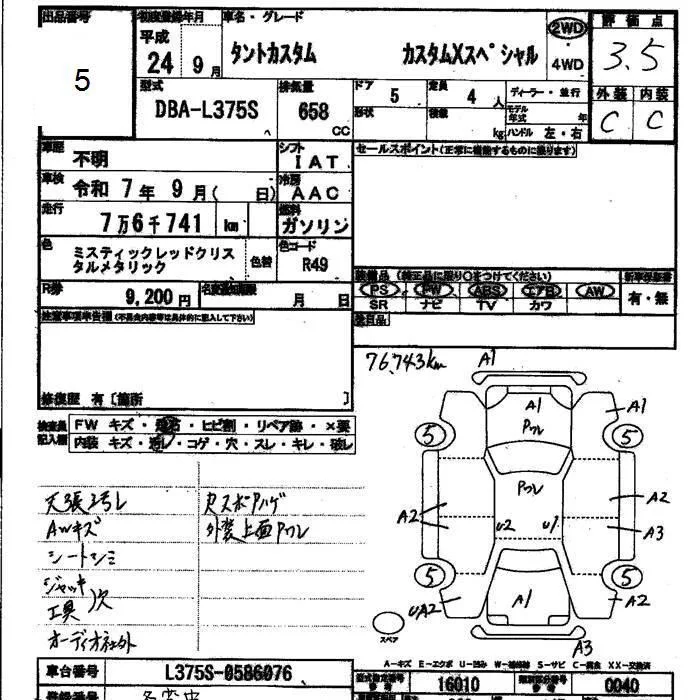 出品番号
5
初度登録年月
平成
24 9月
車名・グレード
タントカスタム カスタムXスペシャル
2WD
・
4WD
評価点
3.5
外装 内装
C C
型式
DBA-L375S
排気量
658
CC
ドア
5
定員
4人
形状
積載
kg
ディーラー・並行
モデル年式 年
ハンドル 左・右
車歴
不明
シフト
IAT
車検
令和 7年 9月( 日)
冷房
AAC
走行
7万6千741 km
燃料
ガソリン
色
ミスティックレッドクリス
タルメタリック
色替
色コード
R49
R券
9,200円
名変期限
月 日
セールスポイント(正常に機能するものに限ります)
装備品 (純正品に限り○をつけてください)
PS PW ABS エアB AW
SR ナビ TV カワ
新車保証書
有・無
後日品
注意事項申告欄(不具合内容等は具体的に記入して下さい)
修復歴 有〔箇所 〕
検査員
記入欄
FW キズ・飛石・ヒビ割・リペア跡・×要
内装 キズ・汚レ・コゲ・穴・スレ・キレ・破レ
76,743km
A1
A1
Pクレ
A1
5
5
Pクレ
A2
A2
A3
U2
U1
5
5
A1
UA2
A2
A3
スペア
天張ヨゴレ
AWキズ
シートシミ
ジャッキ
工具 欠
オーディオ社外
外装上面Pクレ
A-キズ E-エクボ U-凹み W-補修跡 S-サビ C-腐食 XX-交換済
車台番号
L375S-0586076
型式指定番号
16010
類別区分番号
0040
登録番号